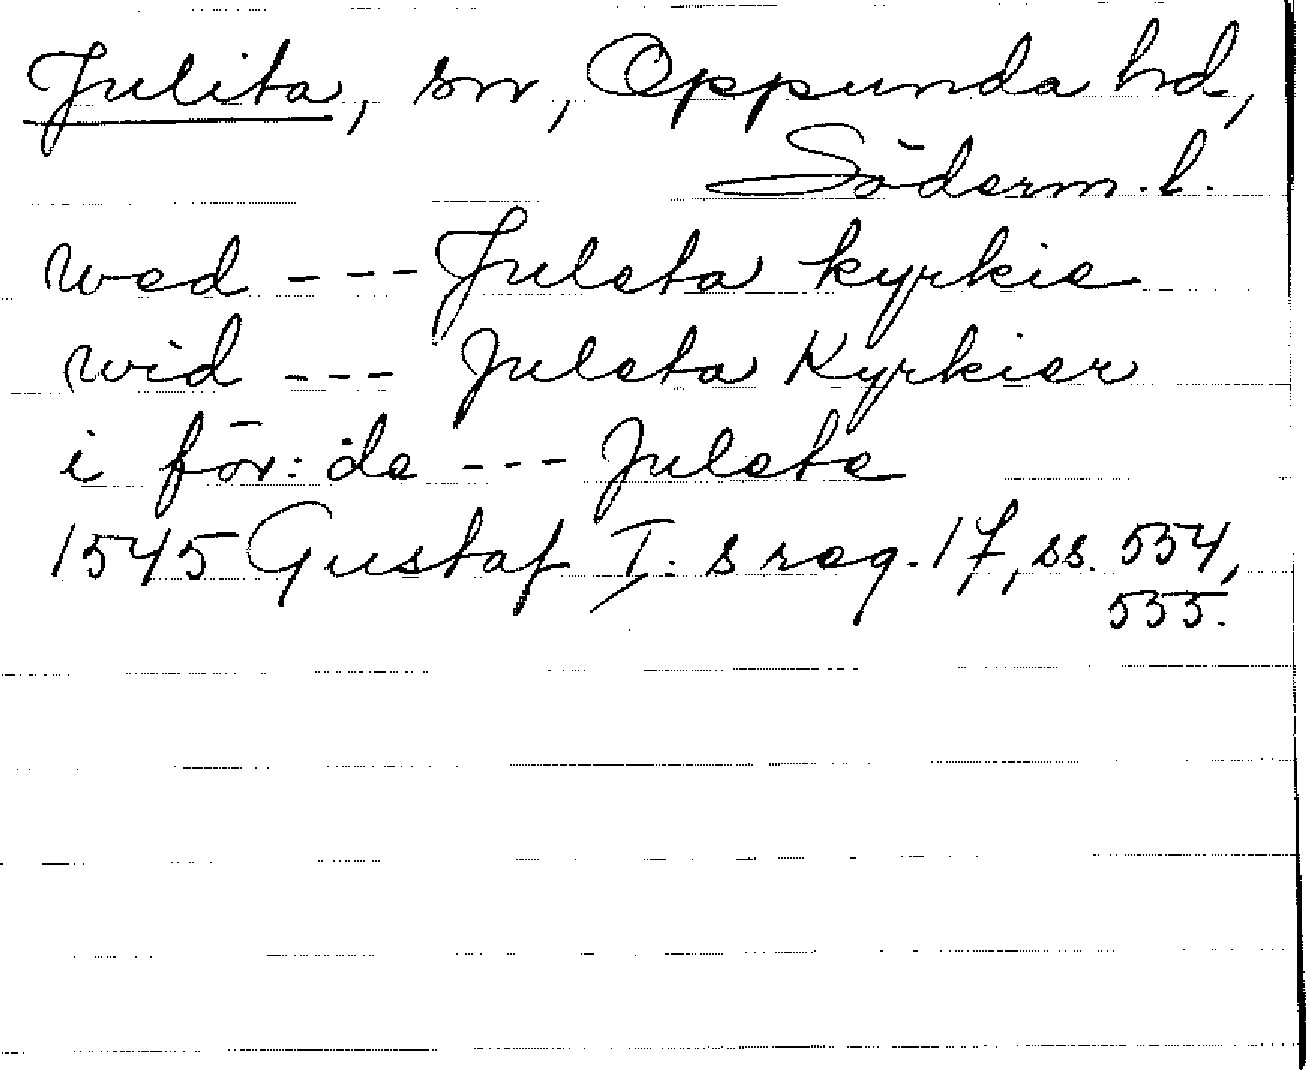 Julita, sn, Oppunda hd,
Söderm. l.
wed --- Juleta kyrkie
wid --- Juleta Kyrkier
i för: de --- Julete
1545 Gustaf I. s reg. 17, ss. 554,
555.